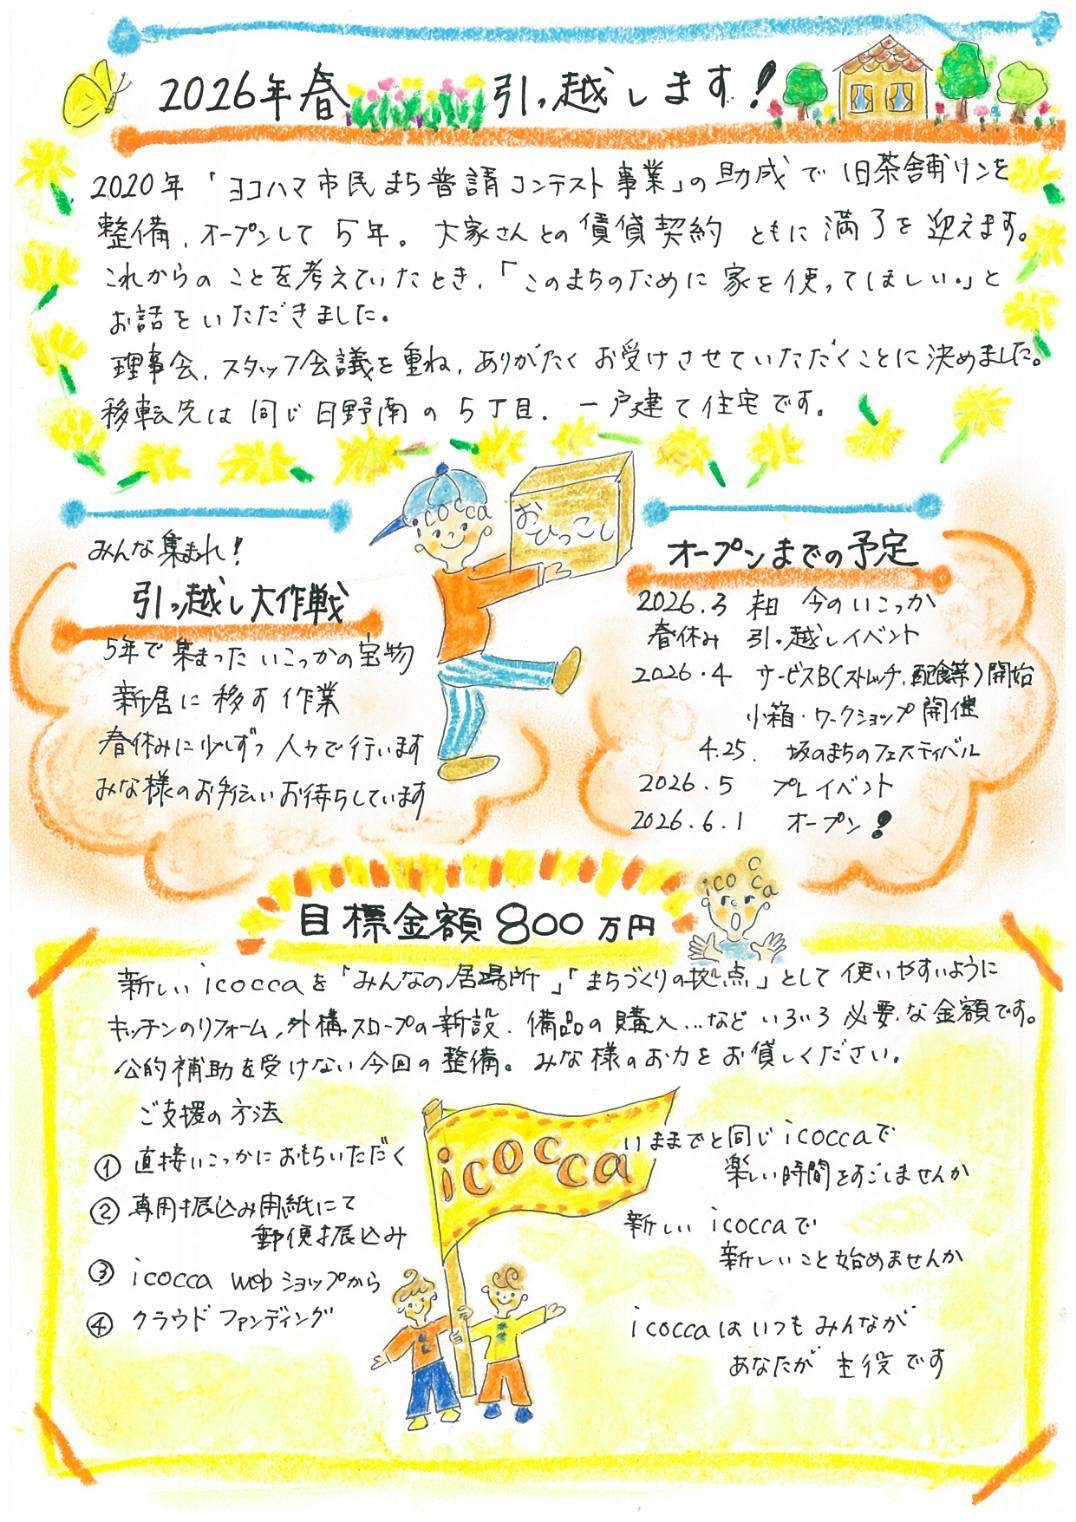 2026年春 引っ越します!
2020年「ヨコハマ市民まち普請コンテスト事業」の助成で旧茶舗リンを
整備、オープンして5年。大家さんとの賃貸契約ともに満了を迎えます。
これからのことを考えていたとき、「このまちのために家を使ってほしい。」と
お話をいただきました。
理事会、スタッフ会議を重ね、ありがたくお受けさせていただくことに決めました。
移転先は同じ日野南の5丁目、一戸建て住宅です。
icocca
おひっこし
みんな集まれ!
引っ越し大作戦
5年で集まったいこっかの宝物
新居に移す作業
春休みに少しずつ人力で行います
みな様のお手伝いお待ちしています
オープンまでの予定
2026.3 末日 今のいこっか
春休み 引っ越しイベント
2026.4 サービスB(ストレッチ、配食等)開始
小箱・ワークショップ開催
4.25. 坂のまちのフェスティバル
2026.5 プレイベント
2026.6.1 オープン!
目標金額800万円
icocca
新しいicoccaを「みんなの居場所」「まちづくりの拠点」として使いやすいように
キッチンのリフォーム、外構スロープの新設、備品の購入...などいろいろ必要な金額です。
公的補助を受けない今回の整備。みな様のお力をお貸しください。
ご支援の方法
① 直接いこっかにおもちいただく
② 専用振込み用紙にて
郵便振込み
③ icocca webショップから
④ クラウドファンディング
icocca
いままでと同じicoccaで
楽しい時間をすごしませんか
新しいicoccaで
新しいこと始めませんか
icoccaはいつもみんなが
あなたが主役です